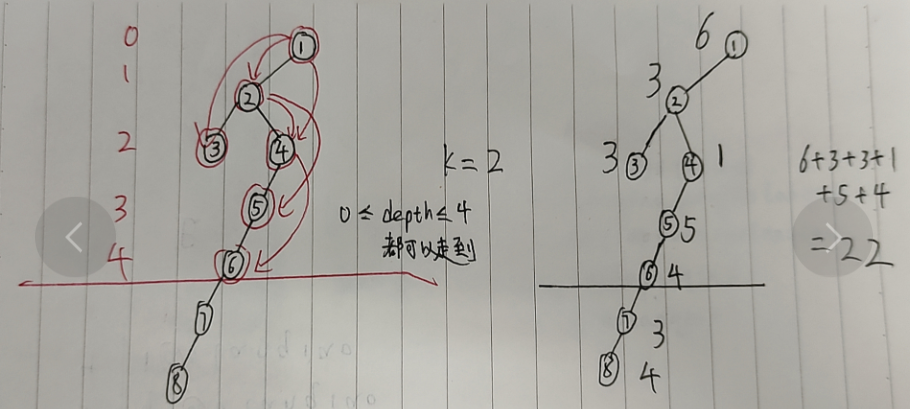 0
1
2
3
4
①
②
③
④
⑤
⑥
7
⑧
k=2
0 ≤ depth ≤ 4
都可以走到
6 ①
3 ②
3 ③
④ 1
⑤ 5
⑥ 4
⑦ 3
⑧ 4
6+3+3+1
+5+4
=22